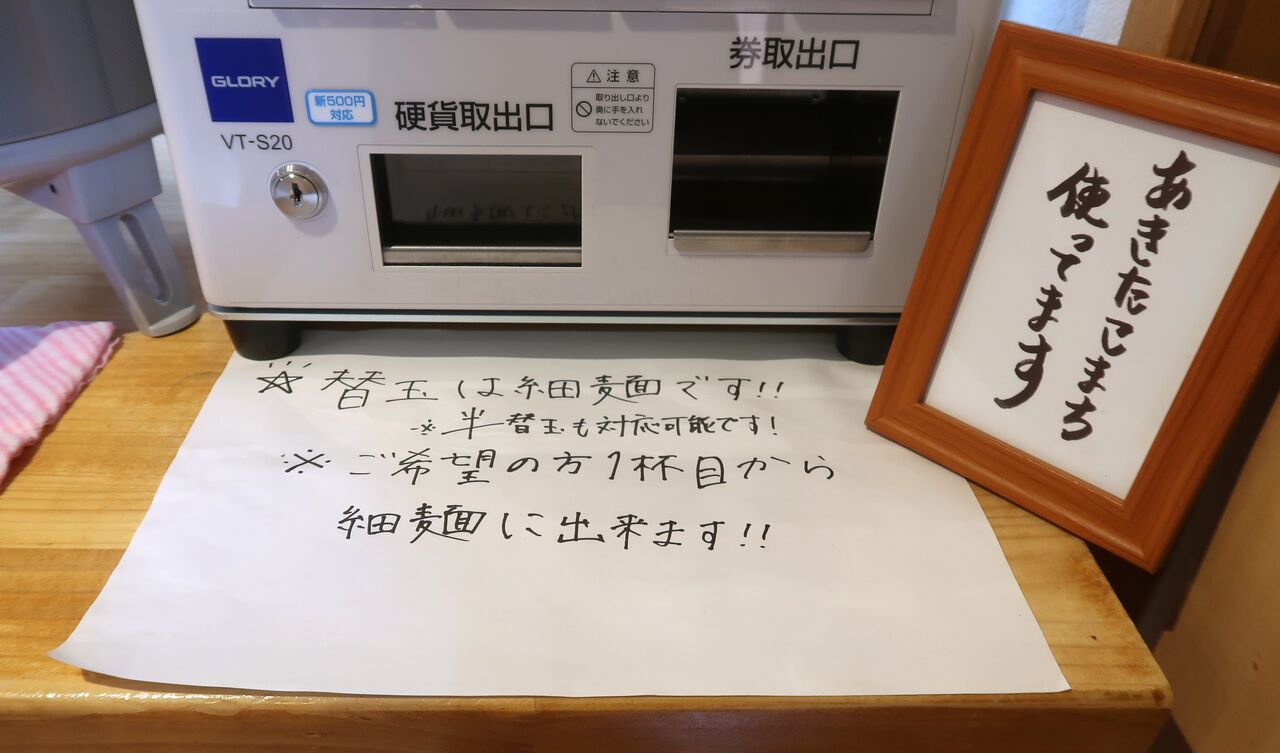 GLORY
VT-S20
新500円
対応
硬貨取出口
注意
取り出し口より
奥に手を入れ
ないでください
券取出口
あきたこまち
使ってます
☆ 替玉は細麺です!!
※ 半替玉も対応可能です!
※ ご希望の方1杯目から
細麺に出来ます!!